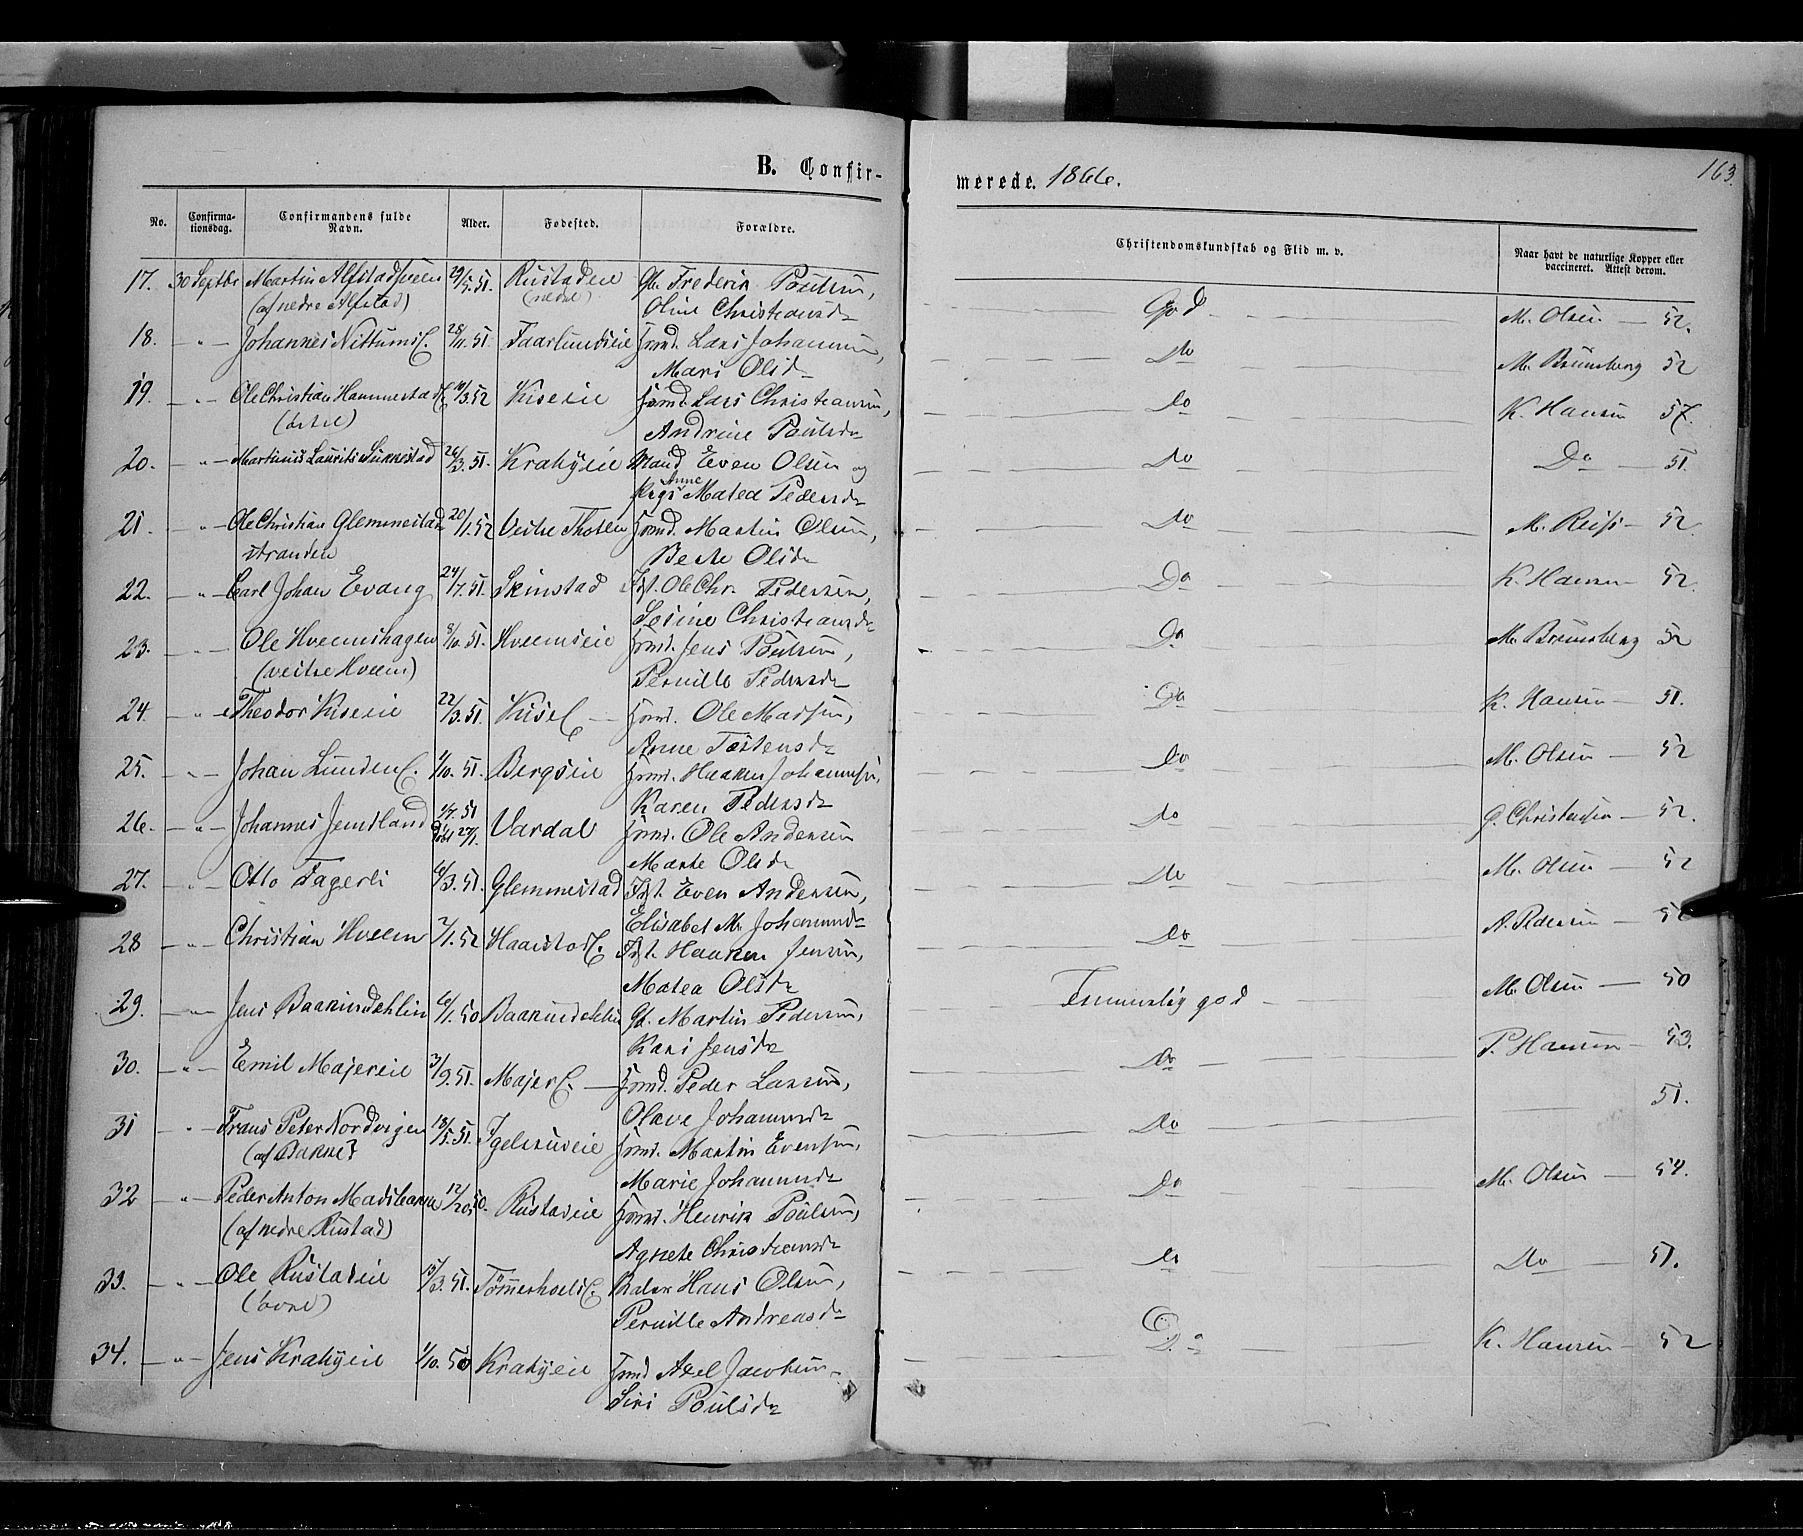 163.
B. Confir-
merede. 1866.
No. Confirma-tionsdag. Confirmandens fulde Navn. Alder. Fødested. Forældre. Christendomskundskab og Flid m. v. Naar havt de naturlige Kopper eller vaccineret. Attest derom.
17. 30 Septbr Martin Alfstad 29/5.51. Rustadeie Frederik Poulsen, God M. Olsen 52.
(af nedre Alfstad) (nedre) Oline Christiansd.
18. " Johannes Nittume. 28/11.51 Faarlundeie Hmd. Lars Johannesen, Do M. Brunsberg 52
Mari Olsd.
19. " Ole Christian Hammerstade 10/3.52 Kiseeie Hmd. Lars Christiansen, Do K. Hansen 57.
Andrine Poulsd.
20. " Martinus Laurits Sunnestad 26/3.51. Krabyeie Mand Even Olsen og Do Do 51.
Pige Anne Matea Pedersd.
21. " Ole Christian Glemmestad 20/1.52 Vestre Thoten Hmd. Martin Olsen, Do M. Reiss 52
stranden Berte Olsd.
22. " Carl Johan Evang 24/7.51. Skinstad Ole Chr. Pedersen, Do K. Hansen 52.
Sesine Christiansd.
23. " Ole Hveemshagen 8/10.51. Hveemseie Hmd. Jens Poulsen, Do M. Brunsberg 52
(vestre Hveem) Pernille Pedersd.
24. " Theodor Kiseeie 22/3.51. Kisee Hmd. Ole Madsen, Do K. Hansen 51.
Anne Tostensd.
25. " Johan Lundene. 1/10.51. Bergseie Hmd. Haaken Johannesen, Do M. Olsen 52
Karen Pedersd.
26. " Johannes Jemtland 1/7.51 Vardal Hmd. Ole Andersen Do G. Christensen 52.
Marte Olsd.
27. " Otto Fagerli 6/3.51. Glemmestad Even Andersen, Do M. Olsen 52
Elisabet M. Johannesd.
28 " Christian Hveem 7/1.52 Haarstade. Haaken Jensen, Do A. Pedersen 52
Matea Olsd.
29. " Jens Baarinddahlen 6/1.50 Martin Pedersen, Temmelig god M. Olsen 50
Kari Jensd.
30. " Emil Majereie 3/9.51. Majere. Hmd. Peder Larsen, Do P. Hansen 53.
Olave Johannesd.
31 " Frans Peter Nordvigen 18/5.51. Hmd. Martin Evensen, Do 51.
(af Bakke) Marie Johannesd.
32 " Peder Anton Madsbakke 12/12 50. Rustadeie Hmd. Henrik Poulsen, Do M. Olsen 54.
(af nedre Rustad) Agnete Christiansd.
33. " Ole Rustadeie 15/3.51. Tømmerhole. Hans Olsen, Do Do 51.
(øvre) Pernille Andreasd.
34. " Jens Krabyeie 1/10.50 Krabyeie Hmd Axel Jacobsen Do K. Hansen 52
Siri Poulsd.